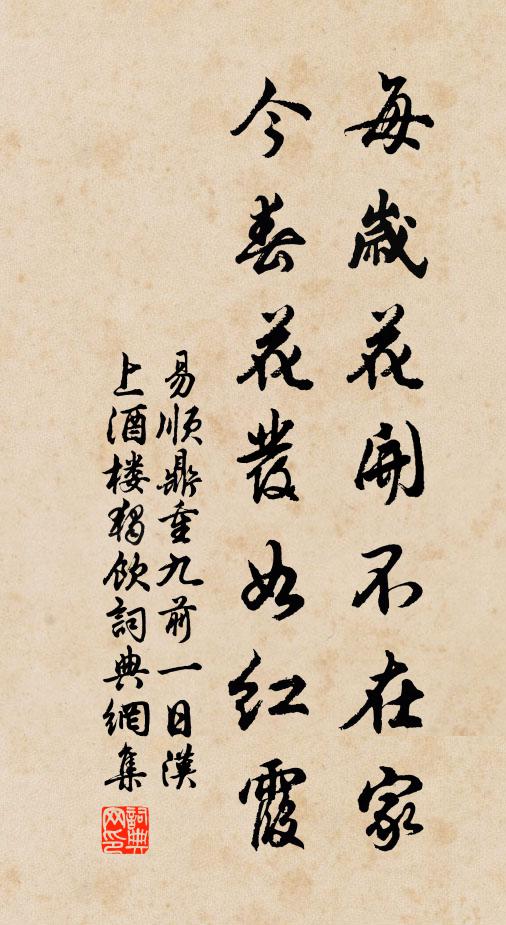 每歲花開不在家
今春花發如紅霞
易順鼎重九前一日漢
上酒樓獨飲詞典網集
詞典
网印